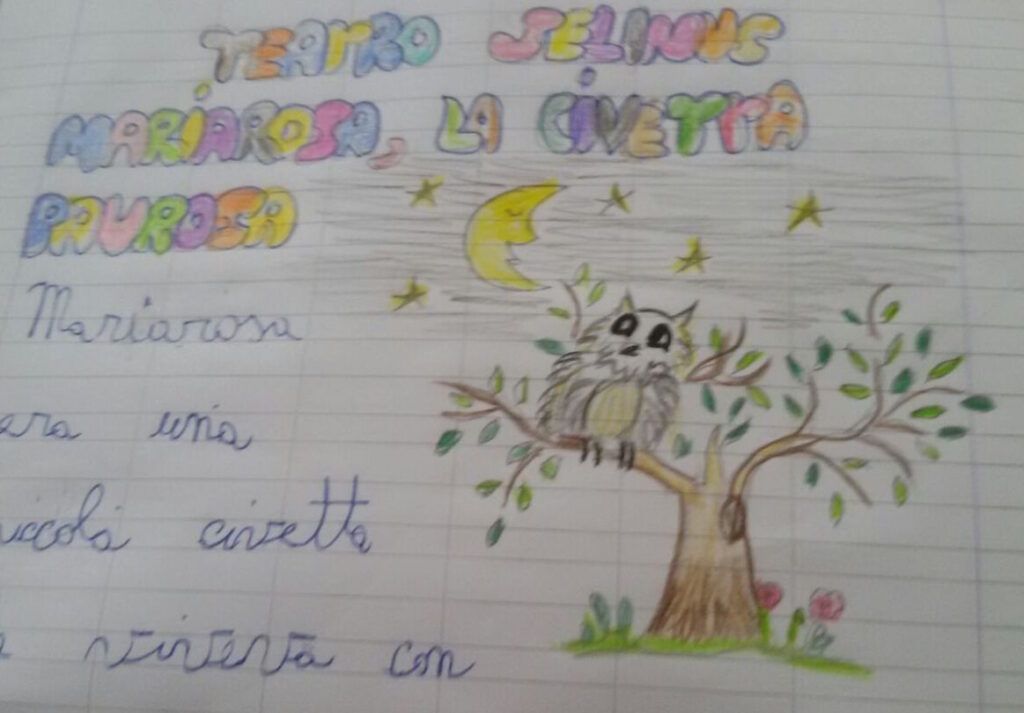 TEATRO SELINUS
MARIAROSA, LA CIVETTA
PAUROSA
Mariarosa
era una
piccola civetta
viveva con